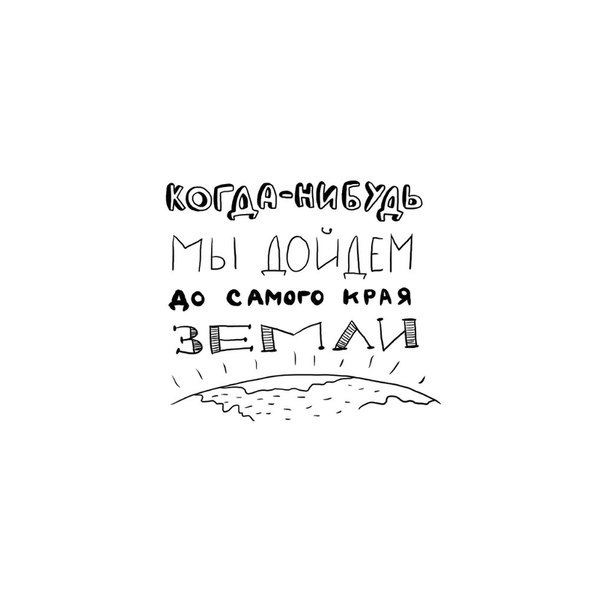 КОГДА-НИБУДЬ
МЫ ДОЙДЕМ
ДО САМОГО КРАЯ
ЗЕМЛИ